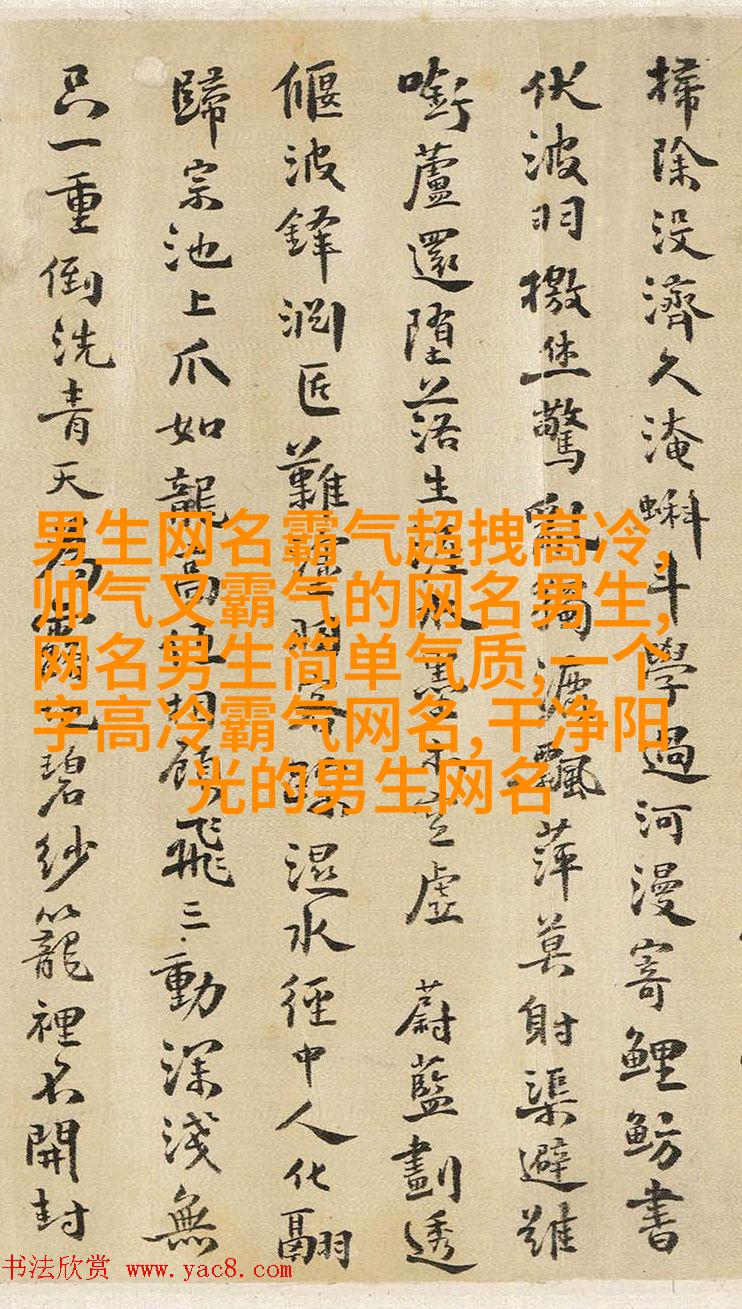 掃除沒濟久淹蝌斗學過河漫寄鯉魴書
伏波羽檄驚亂飄萍莫射渠避難
銜蘆還墮落生虛 蔚藍劃透
偃波鋒洞匠難濕水徑中人化翮
歸宗池上爪如龍飛三動深淺無
只一重倒洗青天碧紗籠裡開封
男生网名霸气超拽高冷,
帅气又霸气的网名男生,
网名男生简单气质,一个
字高冷霸气网名,干净阳
光的男生网名
书法欣赏 www.yac8.com